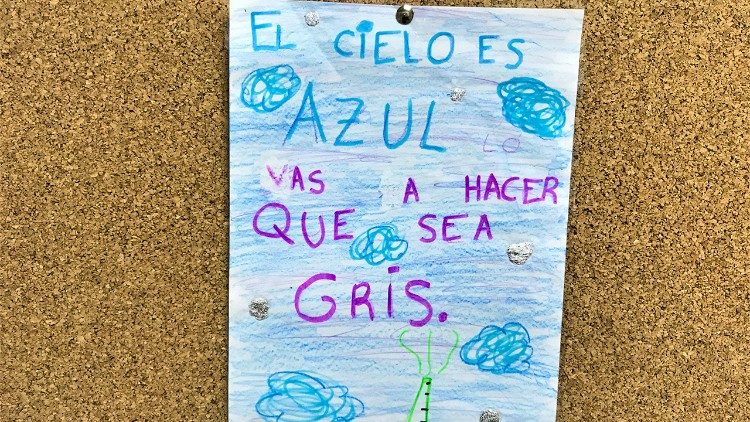 EL CIELO ES
AZUL LO
VAS A HACER
QUE SEA
GRIS.